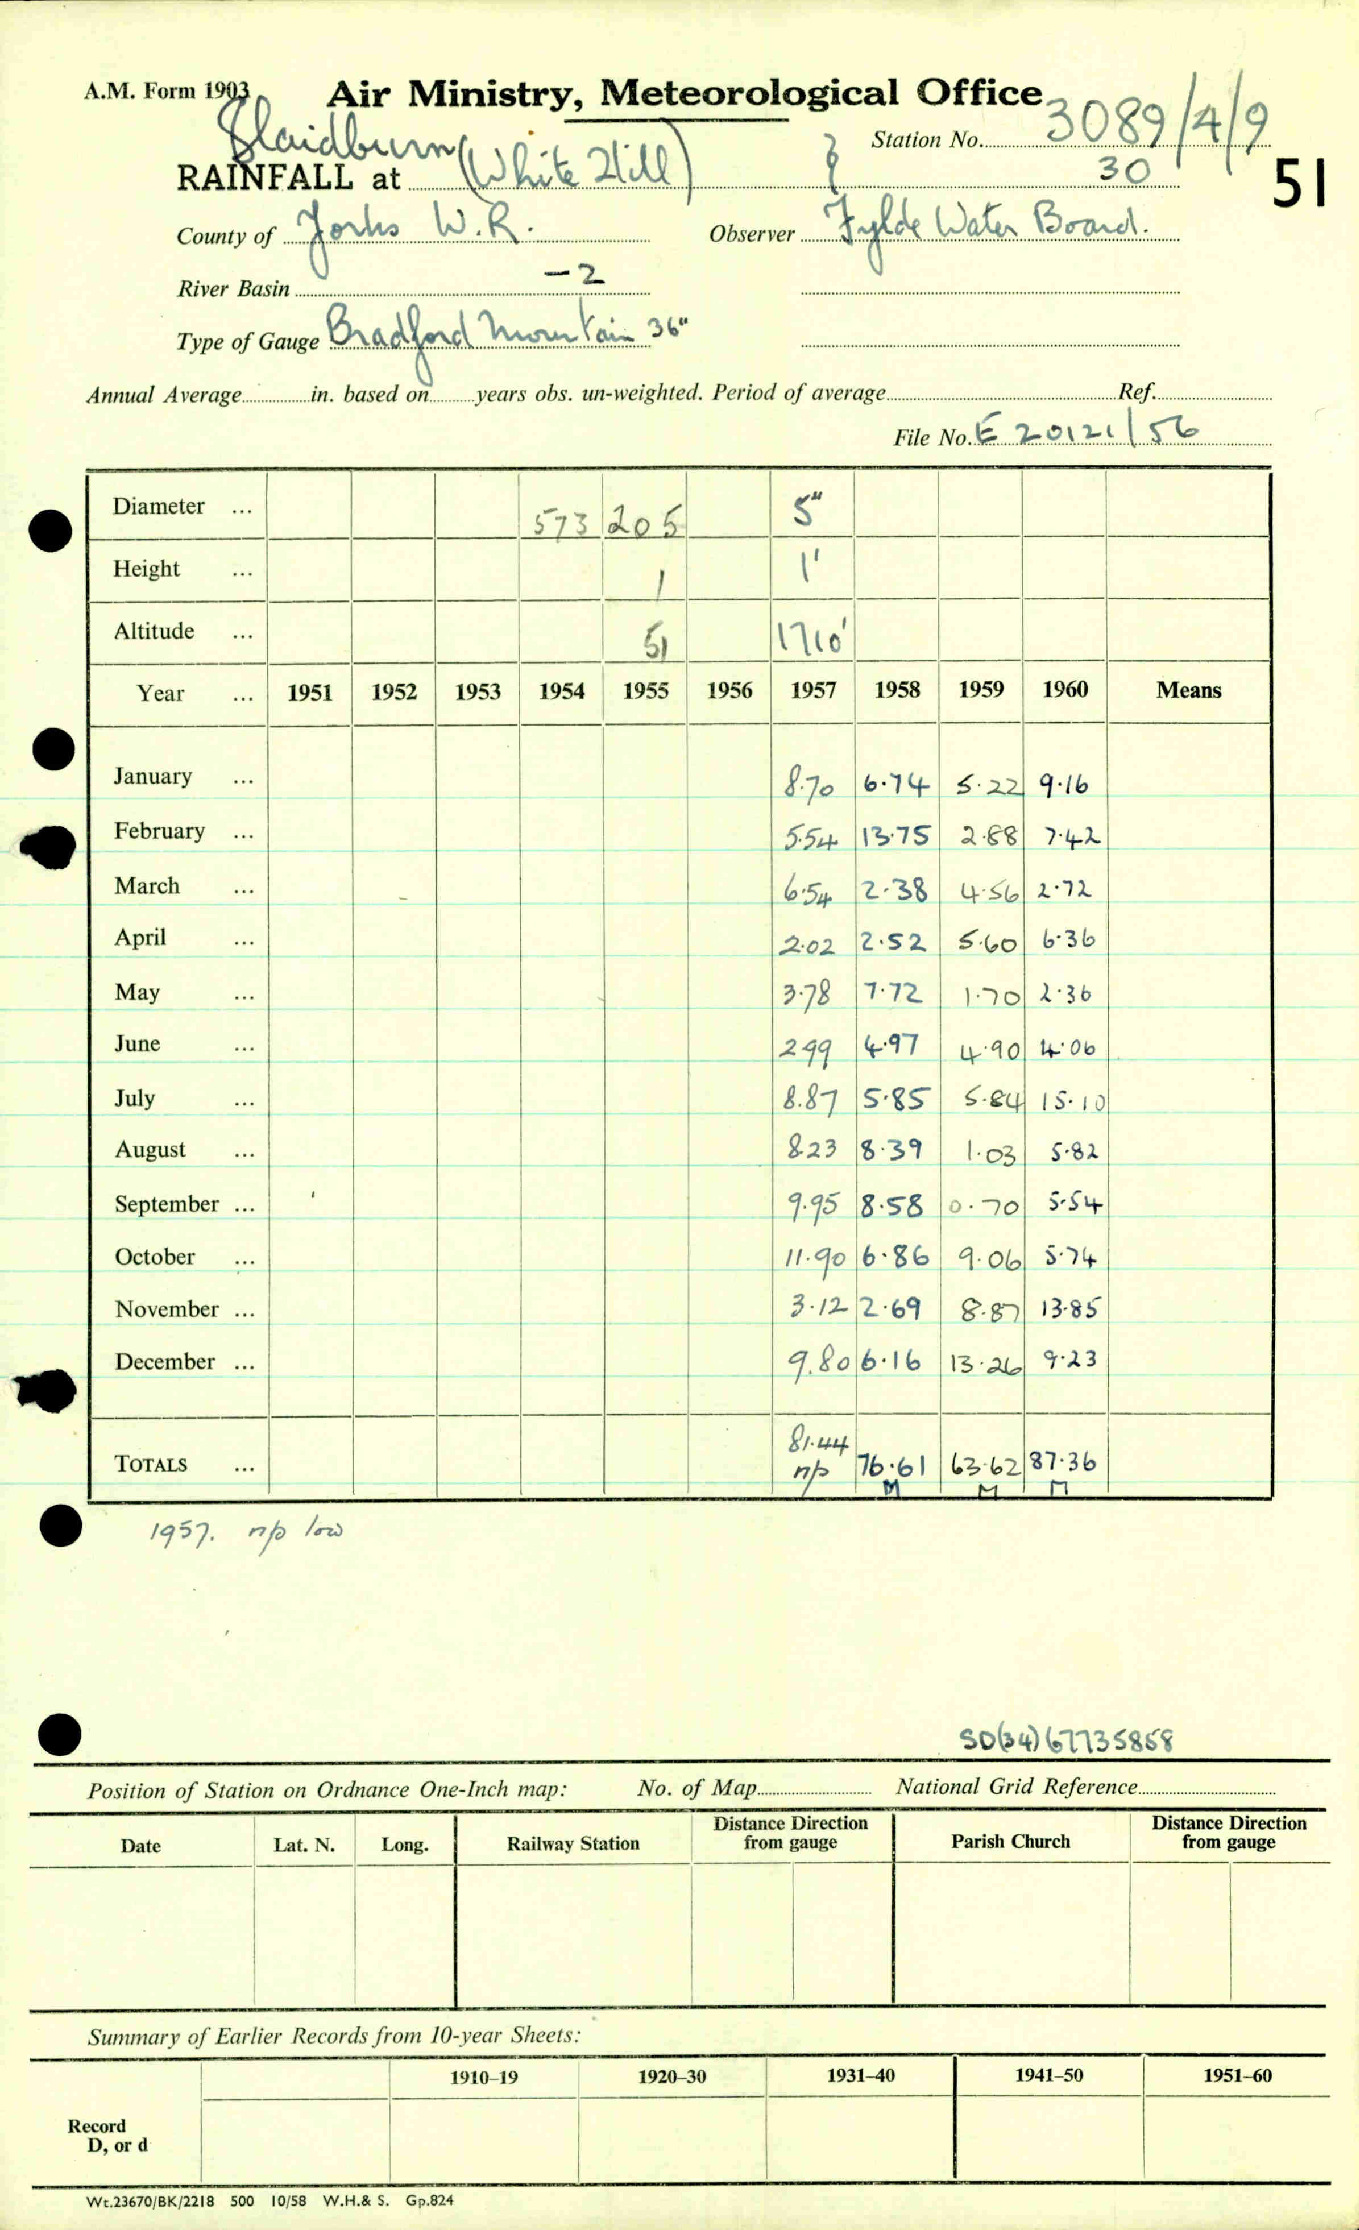 A.M. Form 1903
Air Ministry, Meteorological Office
Slaidburn
Station No. 3089/4/9
RAINFALL at (White Hill) } 30
51
County of Yorks W.R. Observer Fylde Water Board.
River Basin -2
Type of Gauge Bradford Mountain 36"
Annual Average in. based on years obs. un-weighted. Period of average Ref.
File No. E 20121/56
Diameter ... 573 205 5"
Height ... 1 1'
Altitude ... 51 1710'
Year ... 1951 1952 1953 1954 1955 1956 1957 1958 1959 1960 Means
January ... 8.70 6.74 5.22 9.16
February ... 5.54 13.75 2.88 7.42
March ... 6.54 2.38 4.56 2.72
April ... 2.02 2.52 5.60 6.36
May ... 3.78 7.72 1.70 2.36
June ... 2.99 4.97 4.90 4.06
July ... 8.87 5.85 5.84 15.10
August ... 8.23 8.39 1.03 5.82
September ... 9.95 8.58 0.70 5.54
October ... 11.90 6.86 9.06 5.74
November ... 3.12 2.69 8.87 13.85
December ... 9.80 6.16 13.26 9.23
81.44
TOTALS ... n/p 76.61 63.62 87.36
M M M
1957. n/p low
SD(34)67735858
Position of Station on Ordnance One-Inch map: No. of Map National Grid Reference
Date Lat. N. Long. Railway Station Distance Direction from gauge Parish Church Distance Direction from gauge
Summary of Earlier Records from 10-year Sheets:
1910–19 1920–30 1931–40 1941–50 1951–60
Record
D, or d
Wt.23670/BK/2218 500 10/58 W.H.& S. Gp.824